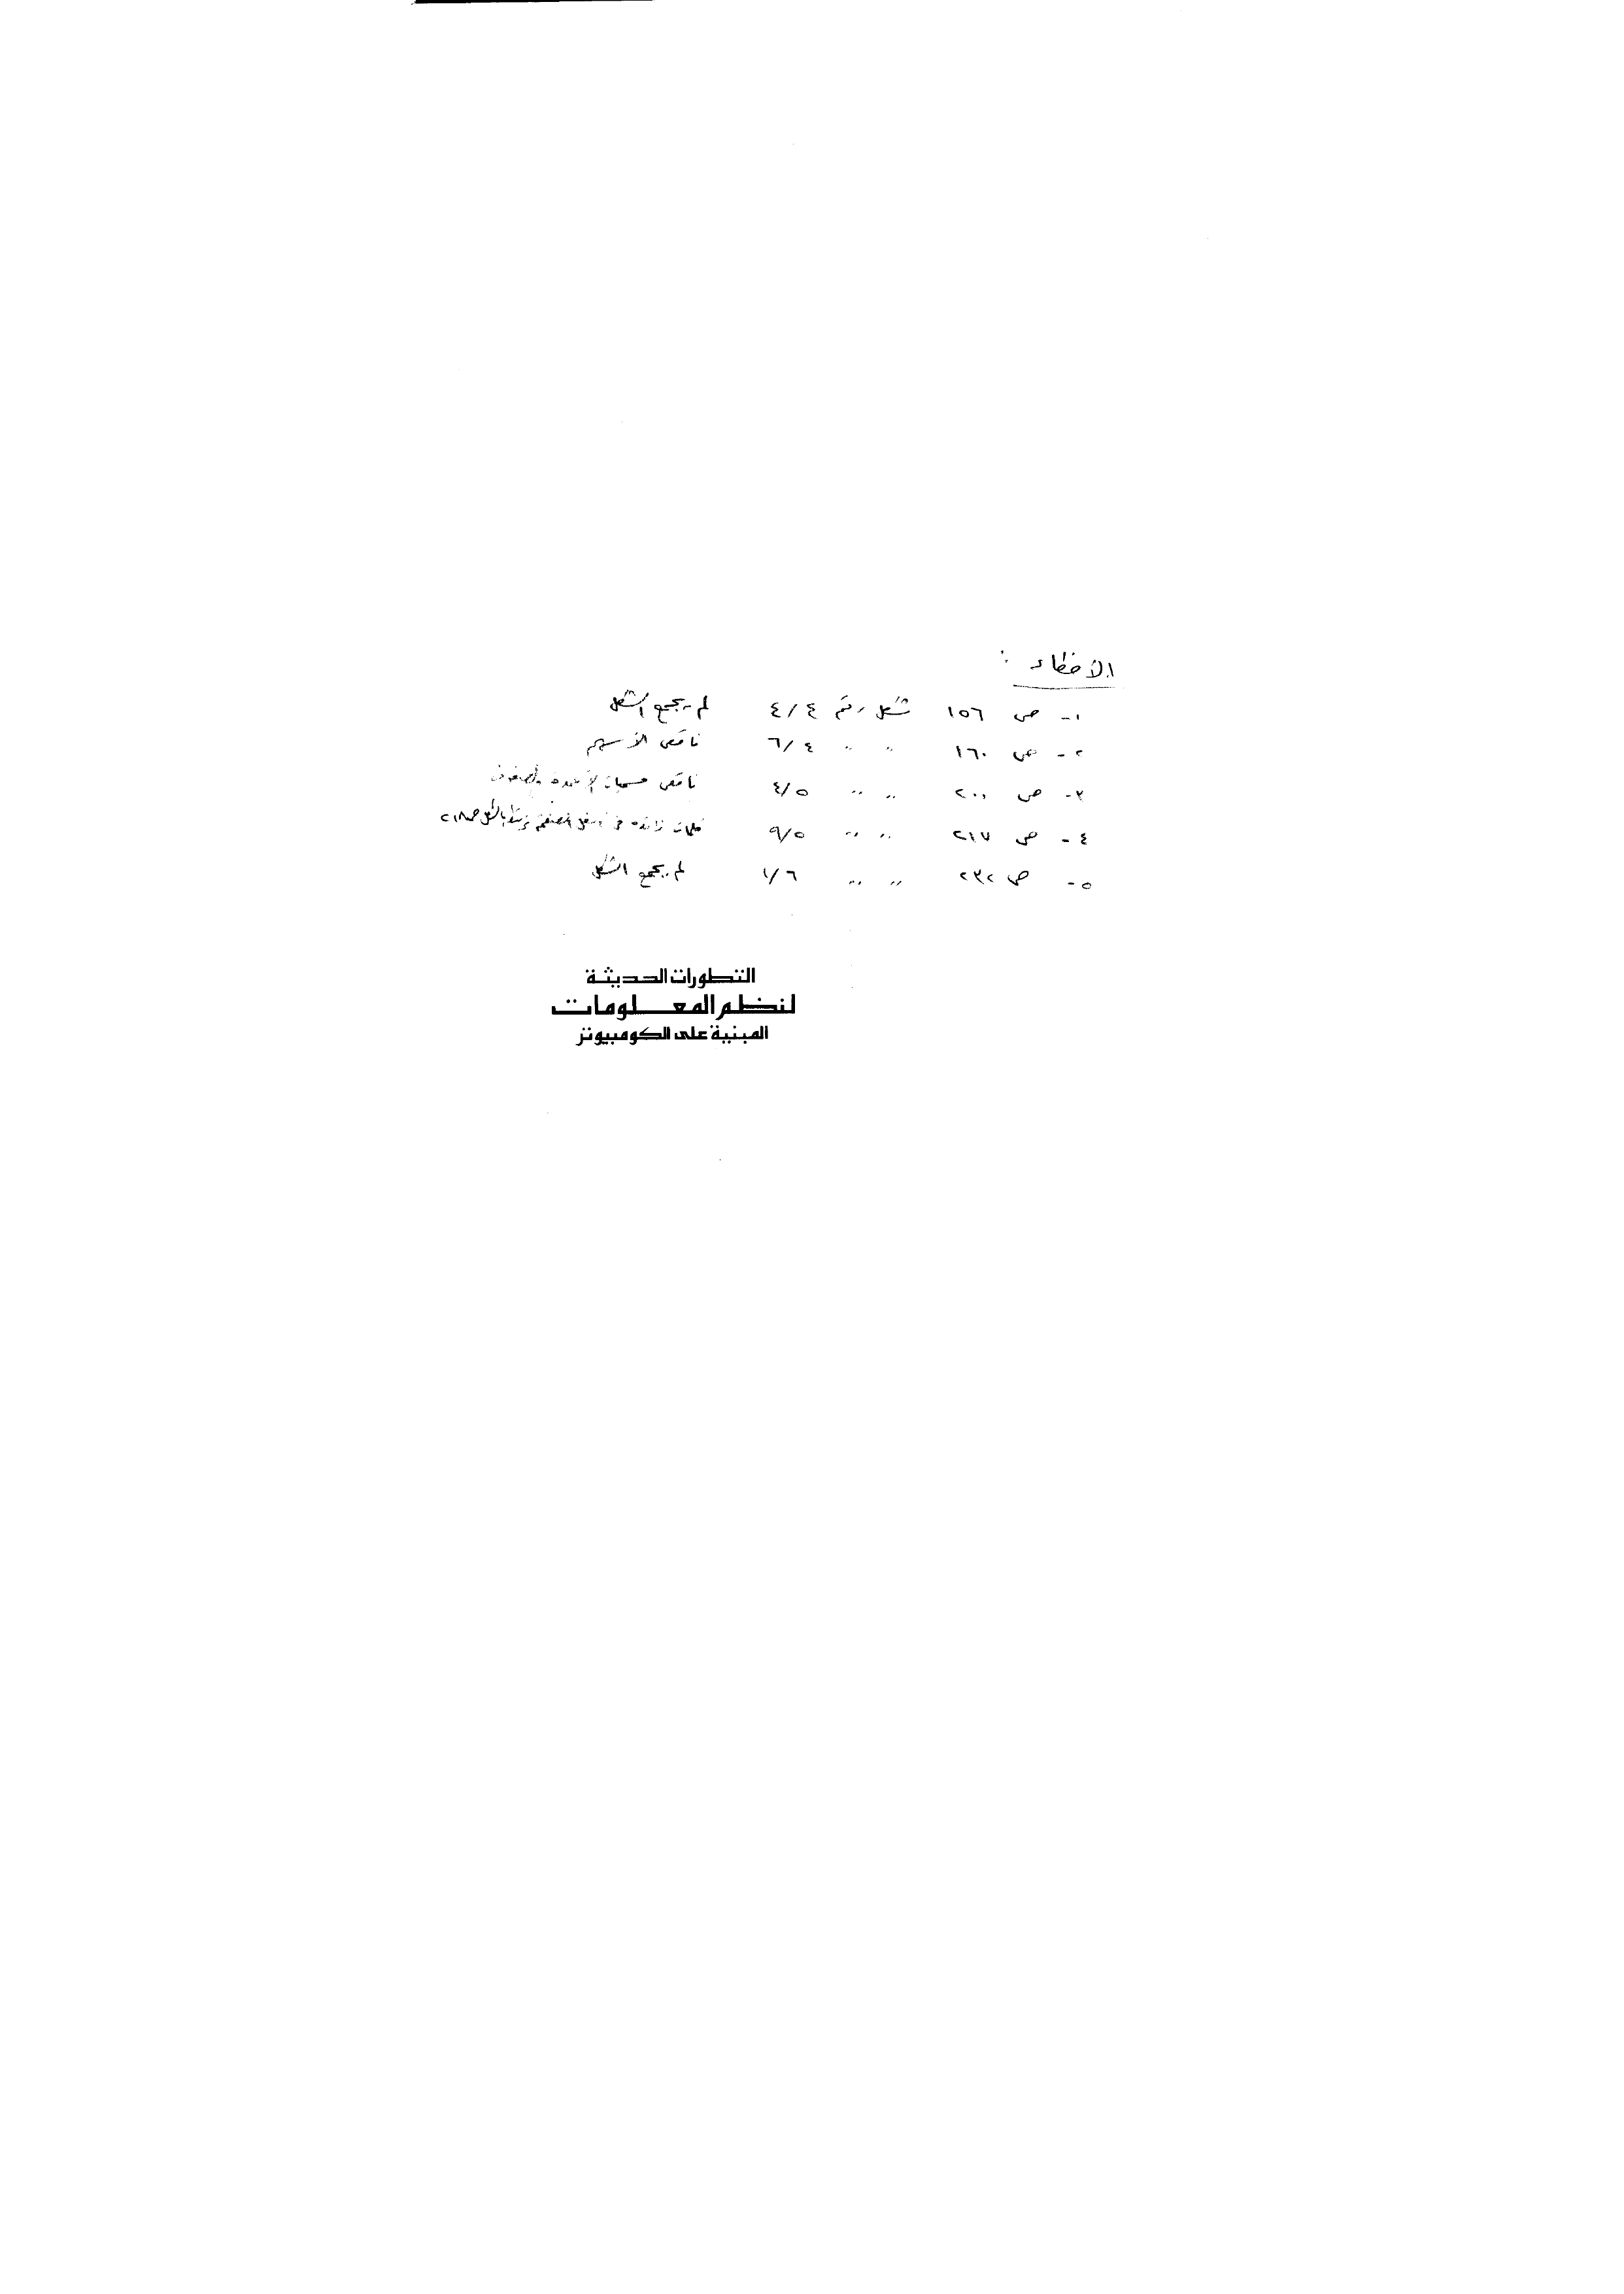 الأخطاء :
١- ص ١٥٦ شكل رقم ٤/٤ لم يجمع الشكل
٢- ص ١٦٠ " " ٦/٤ ناقص الأسهم
٣- ص ٢٠٠ " " ٤/٥ ناقص مسميات الأعمدة والصفوف
٤- ص ٢١٧ " " ٩/٥ كلمات زائدة فى أسفل الصفحة مرتبطة بالشكل ص ٢١٨
٥- ص ٢٣٢ " " ١/٦ لم يجمع الشكل
التطورات الحديثة
لنظم المعلومات
المبنية على الكومبيوتر